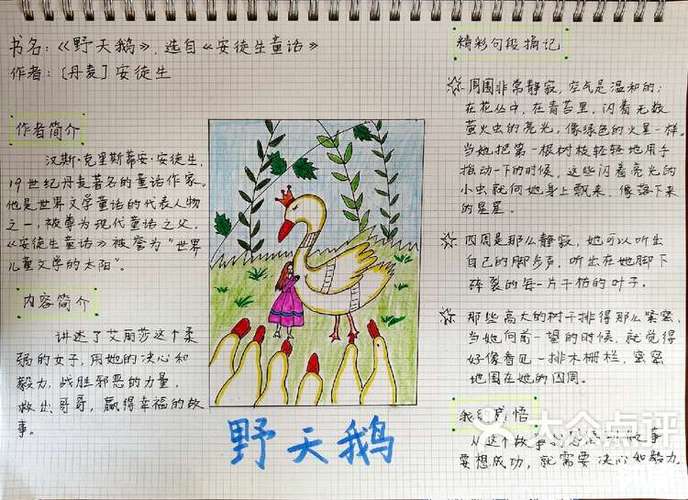 书名：《野天鹅》，选自《安徒生童话》
作者：［丹麦］安徒生
作者简介
汉斯·克里斯蒂安·安徒生，
19世纪丹麦著名的童话作家。
他是世界文学童话的代表人物
之一，被尊为现代童话之父。
《安徒生童话》被誉为"世界
儿童文学的太阳"。
内容简介
讲述了艾丽莎这个柔
弱的女子，用她的决心和
毅力，战胜邪恶的力量，
救出哥哥，赢得幸福的故
事。
野天鹅
精彩句段摘记
☆周围非常静寂，空气是温和的；
在花丛中，在青苔里，闪着无数
萤火虫的亮光，像绿色的火星一样。
当她把第一根树枝轻轻地用手
拨动一下的时候，这些闪着亮光的
小虫就向她身上飘来，像落下来
的星星。
☆四周是那么静寂，她可以听出
自己的脚步声，听出在她脚下
碎裂的每一片干枯的叶子。
☆那些高大的树干排得那么紧密，
当她向前一望的时候，就觉得
好像看见一排木栅栏，紧紧
地围在她的四周。
我的感悟
从这个故事
要想成功，就需要决心和毅力。
大众点评